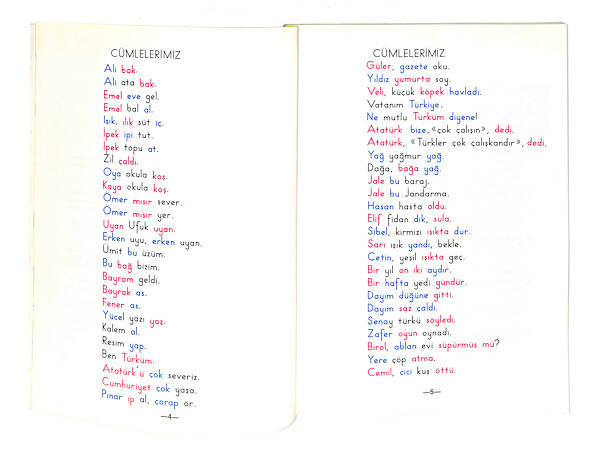 CÜMLELERİMİZ
Ali bak.
Ali ata bak.
Emel eve gel.
Emel bal al.
Işık, ılık süt iç.
İpek ipi tut.
İpek topu at.
Zil çaldı.
Oya okula koş.
Kaya okula koş.
Ömer mısır sever.
Ömer mısır yer.
Uyan Ufuk uyan.
Erken uyu, erken uyan.
Ümit bu üzüm.
Bu bağ bizim.
Bayram geldi.
Bayrak as.
Fener as.
Yücel yazı yaz.
Kalem al.
Resim yap.
Ben Türküm.
Atatürk'ü çok severiz.
Cumhuriyet çok yaşa.
Pınar ip al, çorap ör.
—4—
CÜMLELERİMİZ
Güler, gazete oku.
Yıldız yumurta soy.
Veli, küçük köpek havladı.
Vatanım Türkiye.
Ne mutlu Türküm diyene!
Atatürk bize, «çok çalışın», dedi.
Atatürk, «Türkler çok çalışkandır», dedi.
Yağ yağmur yağ.
Dağa, bağa yağ.
Jale bu baraj.
Jale bu Jandarma.
Hasan hasta oldu.
Elif fidan dik, sula.
Sibel, kırmızı ışıkta dur.
Sarı ışık yandı, bekle.
Çetin, yeşil ışıkta geç.
Bir yıl on iki aydır.
Bir hafta yedi gündür.
Dayım düğüne gitti.
Dayım saz çaldı.
Şenay türkü söyledi.
Zafer oyun oynadı.
Birol, ablan evi süpürmüş mü?
Yere çöp atma.
Cemil, cici kuş öttü.
—5—